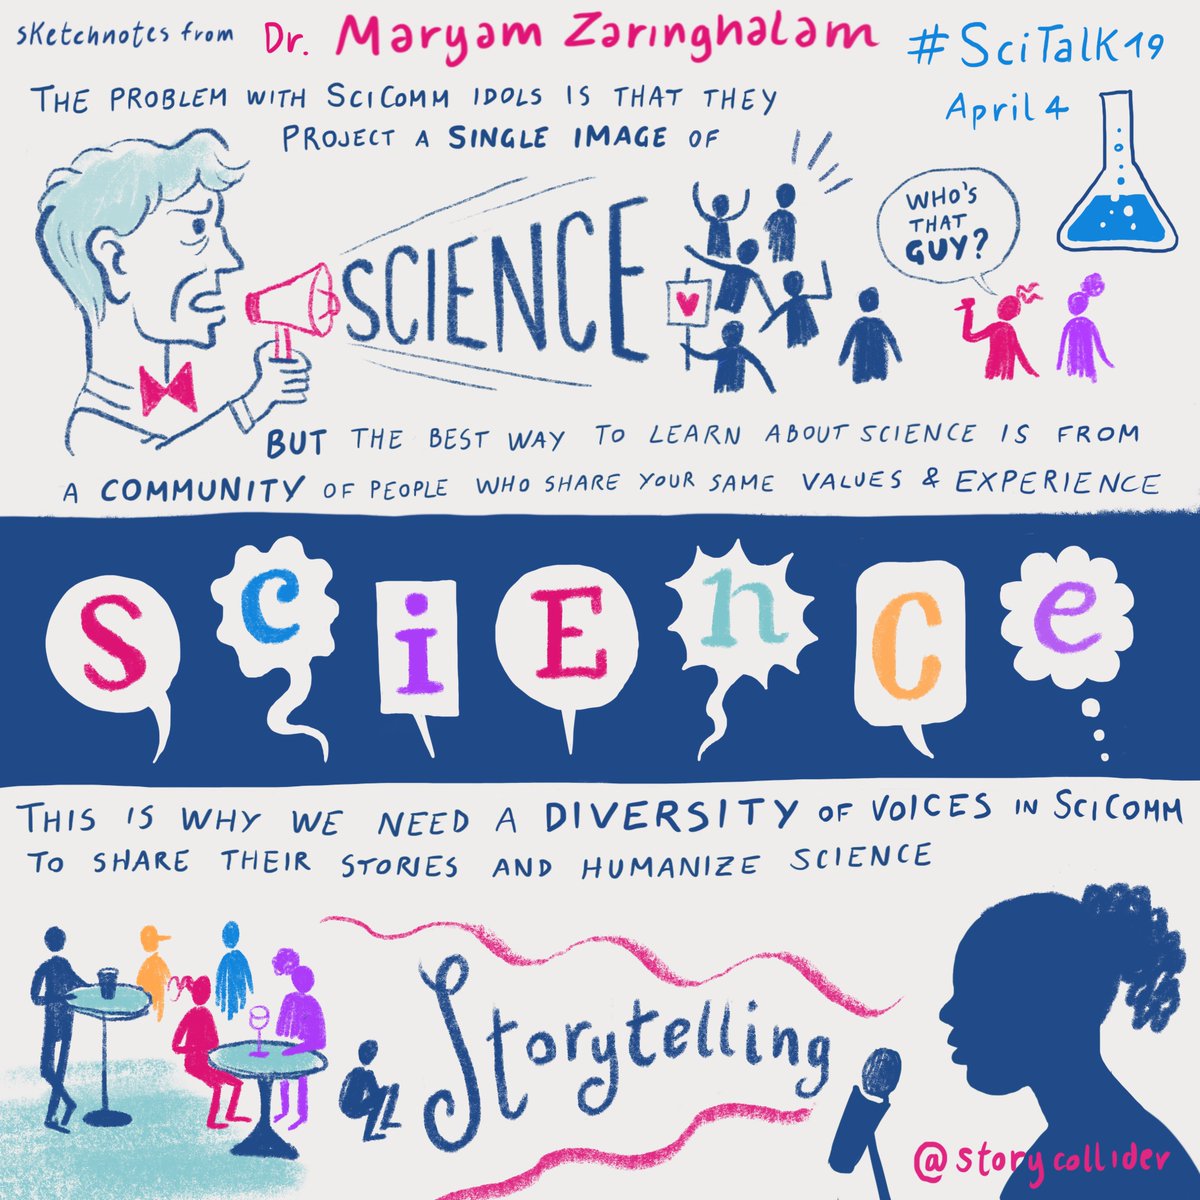 sketchnotes from Dr. Maryam Zaringhalam #SciTalk19
April 4
THE PROBLEM WITH SCICOMM IDOLS IS THAT THEY
PROJECT A SINGLE IMAGE OF
SCIENCE
WHO'S
THAT
GUY?
BUT THE BEST WAY TO LEARN ABOUT SCIENCE IS FROM
A COMMUNITY OF PEOPLE WHO SHARE YOUR SAME VALUES & EXPERIENCE
SciEnCe
THIS IS WHY WE NEED A DIVERSITY OF VOICES IN SCICOMM
TO SHARE THEIR STORIES AND HUMANIZE SCIENCE
Storytelling
@storycollider